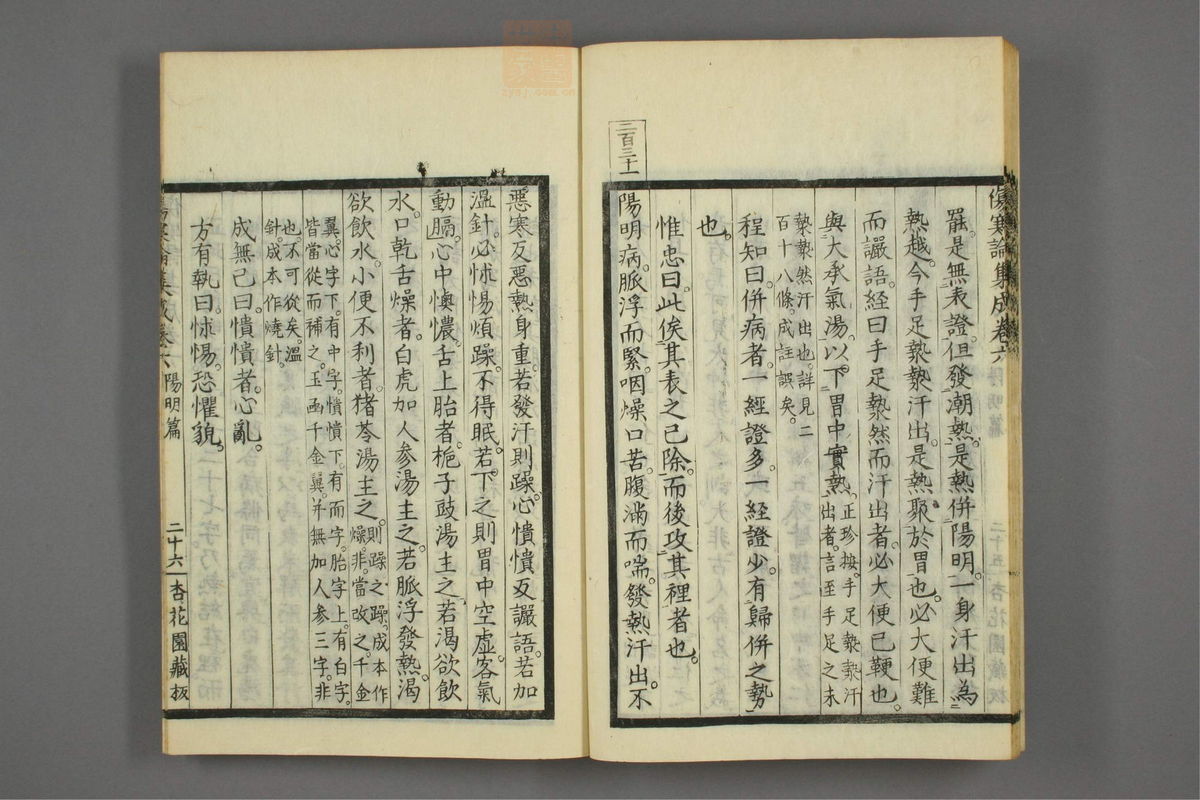 傷寒論集成卷六
罷。是無表證。但發潮熱。是熱併陽明。一身汗出為
熱越。今手足漐漐汗出。是熱聚於胃也。必大便難
而讝語。經曰。手足漐然而汗出者。必大便已鞕也。
與大承氣湯。以下胃中實熱。正珍按。手足漐漐汗出者。言至手足之末
漐漐然汗出也。詳見二百十八條。成註誤矣。
程知曰。併病者。一經證多。一經證少。有歸併之勢
也。
惟忠曰。此俟其表之已除。而後攻其裡者也。
二百三十一
陽明病。脈浮而緊。咽燥口苦。腹滿而喘。發熱汗出。不
惡寒反惡熱。身重。若發汗則躁。心憒憒反讝語。若加
溫針。必怵惕煩躁。不得眠。若下之則胃中空虛。客氣
動膈。心中懊憹。舌上胎者。梔子豉湯主之。若渴欲飲
水。口乾舌燥者。白虎加人參湯主之。若脈浮發熱。渴
欲飲水。小便不利者。猪苓湯主之。則躁之躁。成本作燥。非。當改之。千金
翼。心字下。有中字。憒憒下。有而字。胎字上。有白字。皆當從而補之。玉函千金翼。并無加人參三字。非
也。不可從矣。溫針。成本作燒針。
成無己曰。憒憒者。心亂。
方有執曰。怵惕。恐懼貌。
陽明篇
二十六
杏花園藏板